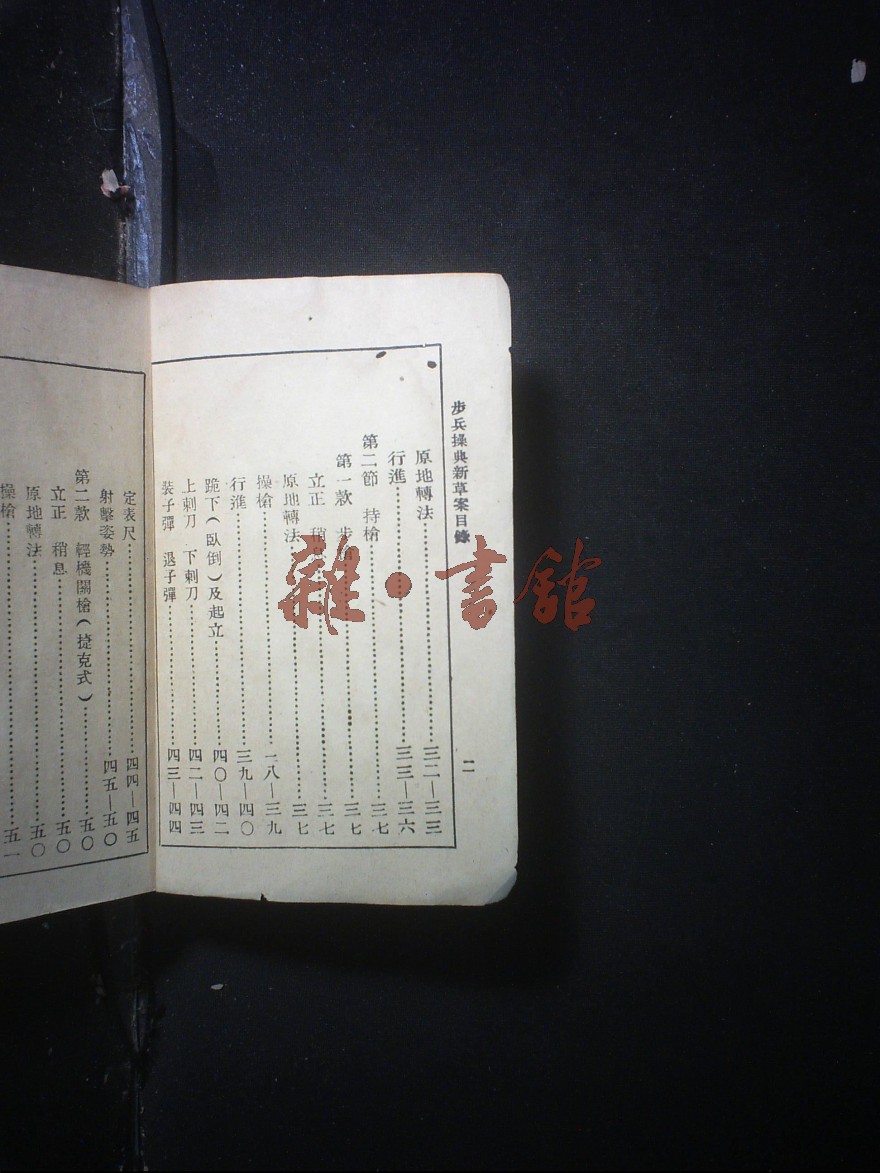 步兵操典新草案目錄
二
原地轉法……三二—三三
行進……三三—三六
第二節 持槍……三七
第一款 步……三七
立正 稍息……三七
原地轉法……三七
操槍……八—三九
行進……三九—四〇
跪下(臥倒)及起立……四〇—四二
上刺刀 下刺刀……四二—四三
裝子彈 退子彈……四三—四四
定表尺……四四—四五
射擊姿勢……四五—五〇
第二款 輕機關槍(捷克式)……五〇
立正 稍息……五〇
原地轉法……五〇
操槍……五一
雜·書館